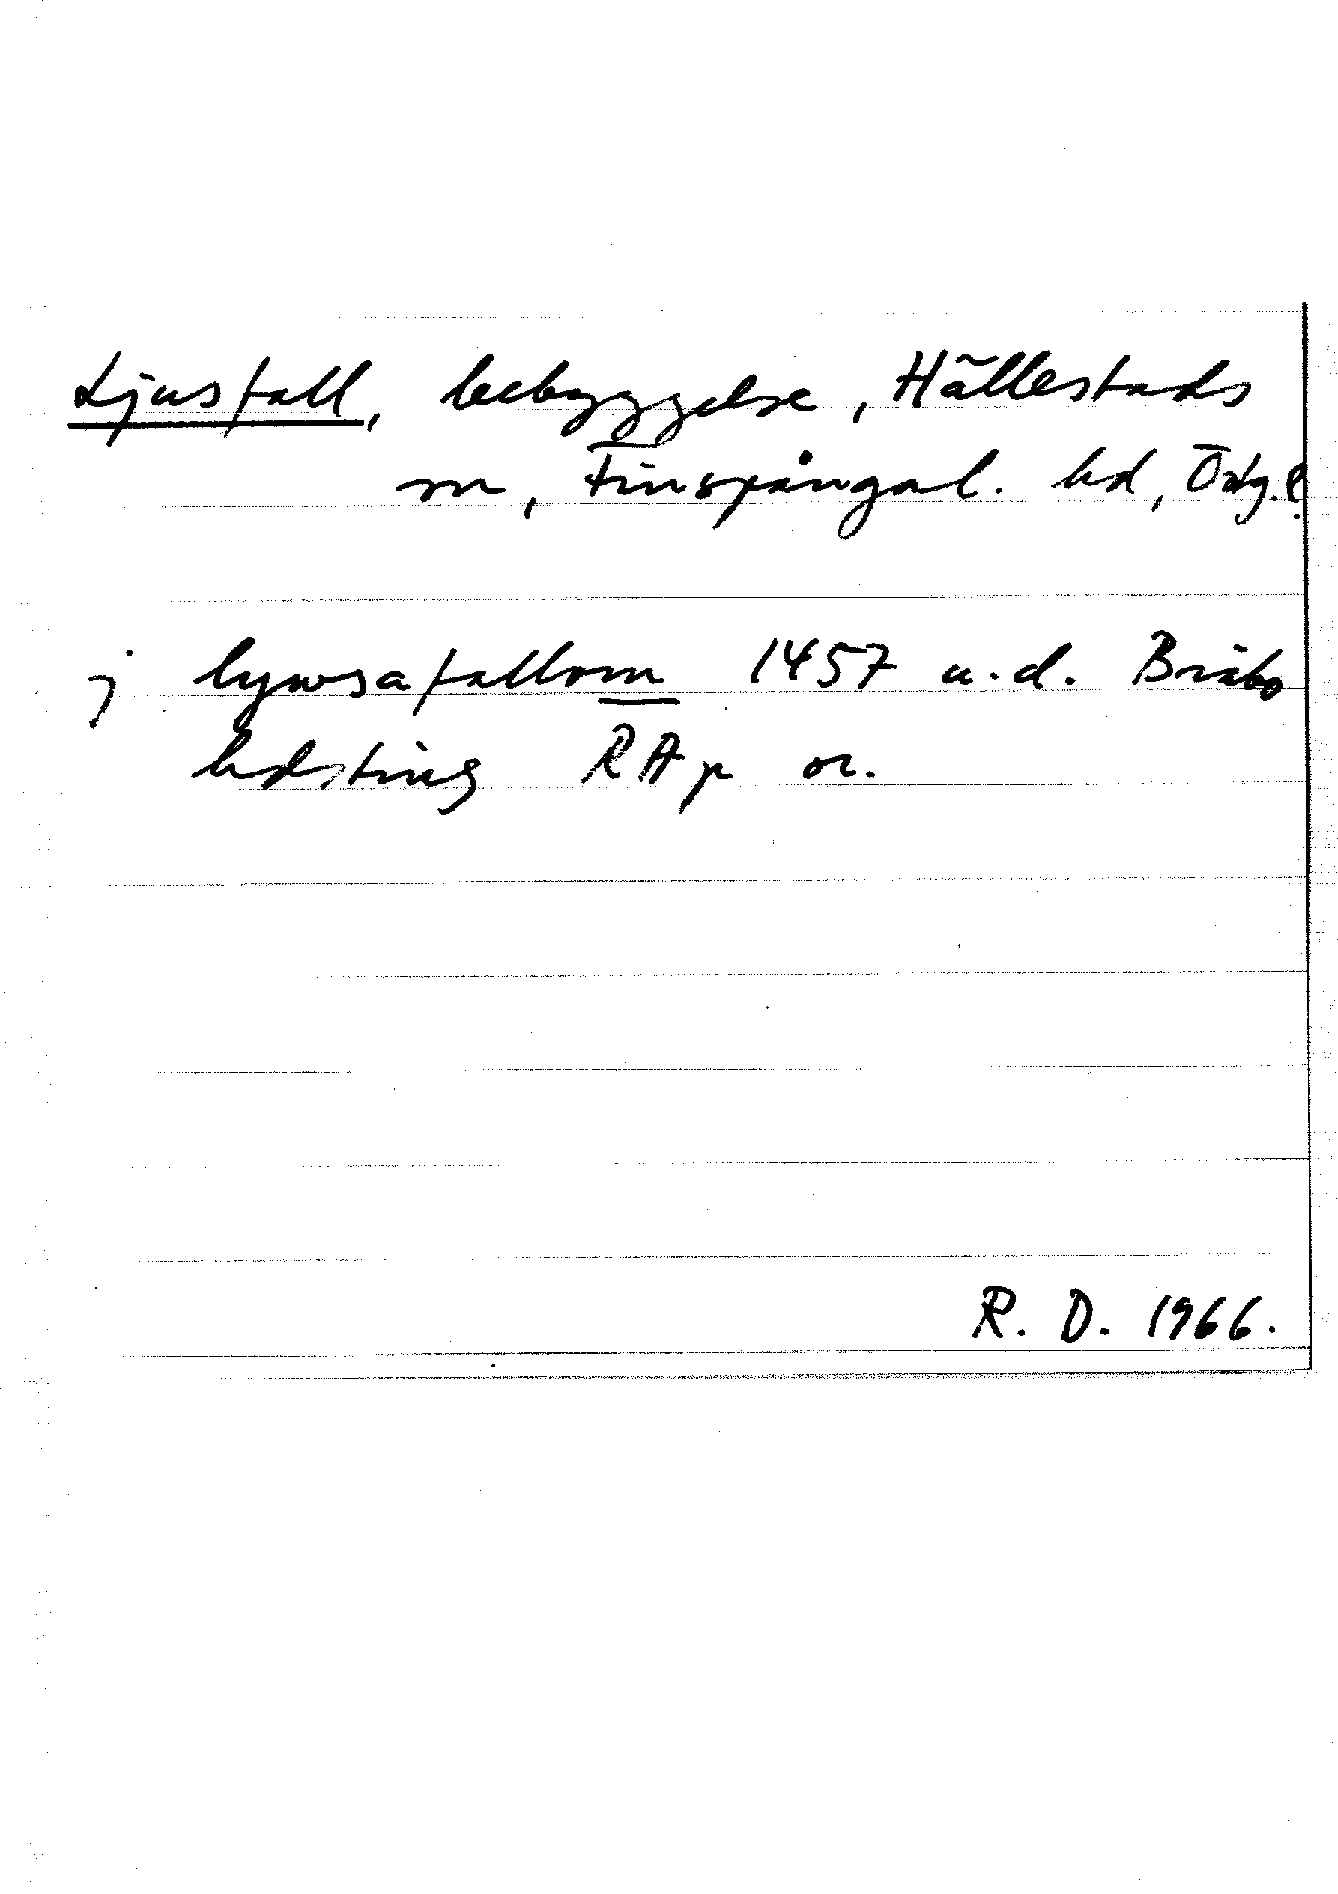 Ljusfall, bebyggelse, Hällestads
sn, Finspångal. hd, Ödg.?
j lywsafallom 1457 u.d. Bråbo
hdsting RAp or.
R. D. 1966.